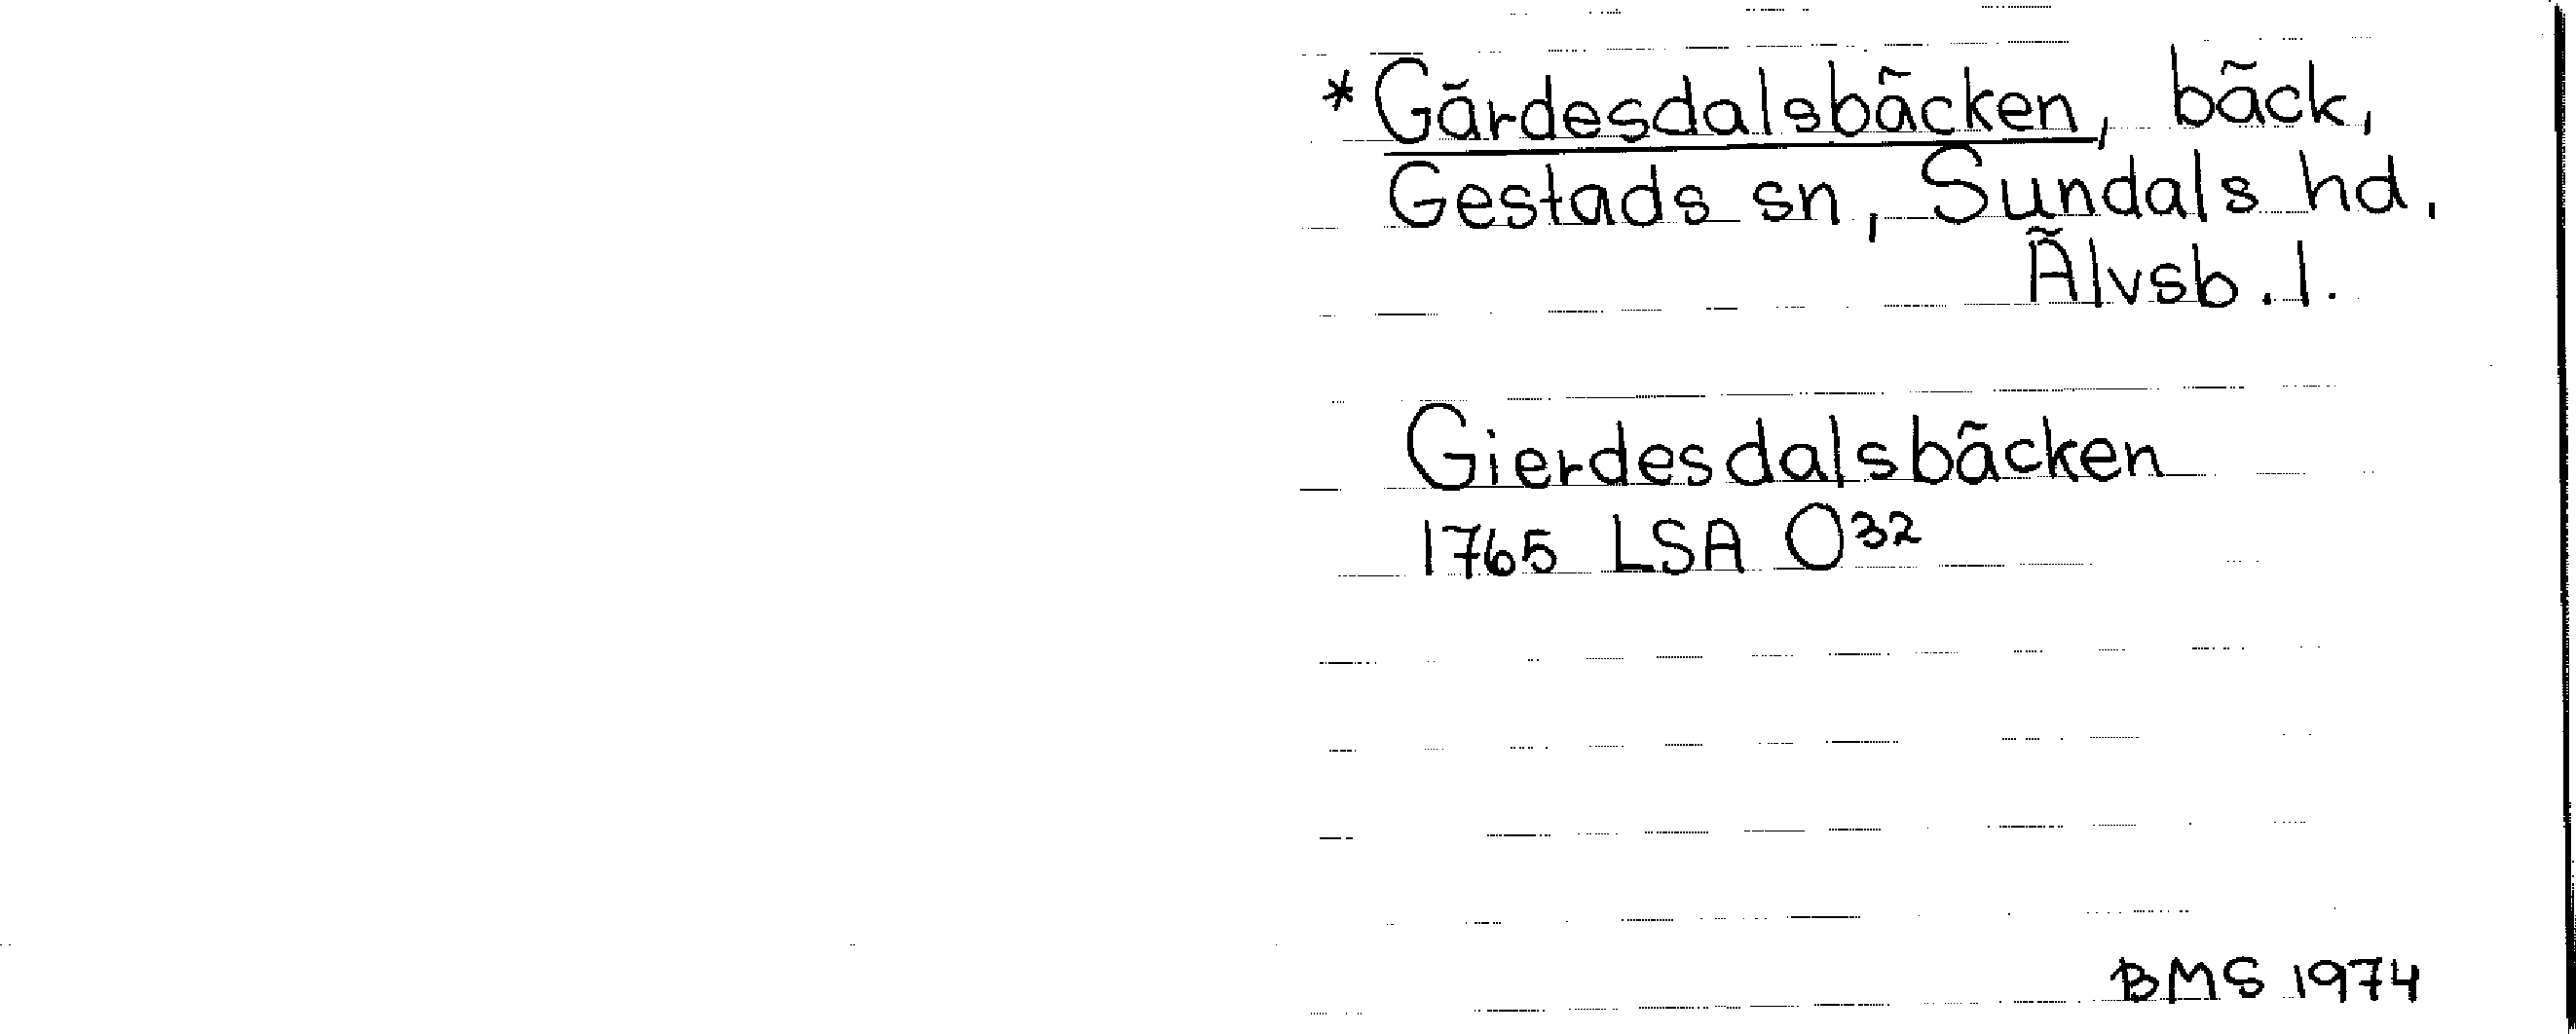 *Gärdesdalsbäcken, bäck,
Gestads sn, Sundals hd.
Älvsb. l.
Gierdesdalsbäcken
1765 LSA O32
BMS 1974